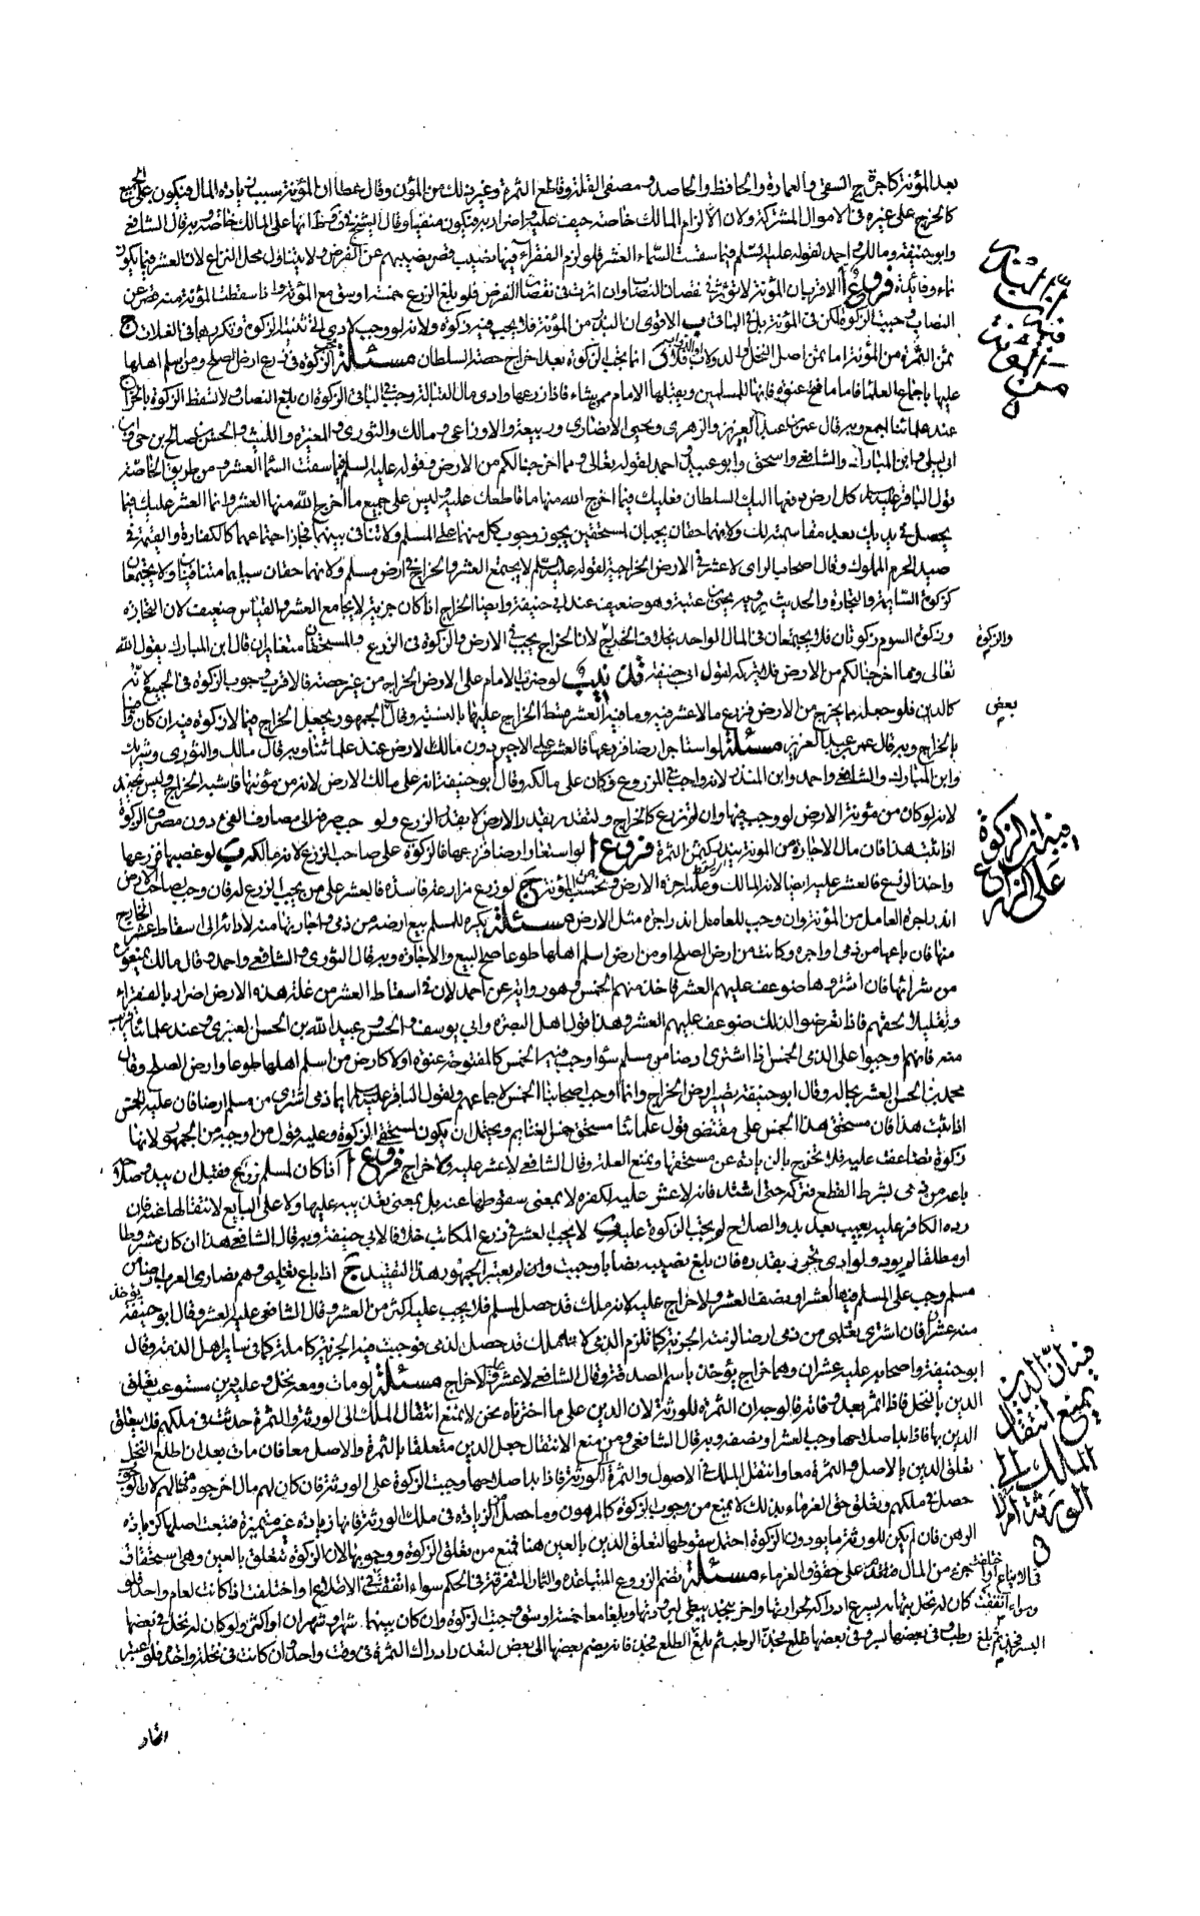 بعد المؤنة كاجرة السقى والعمارة والحافظ والحاصد ومصفى الغلة وقاطع الثمرة وغير ذلك من المؤن وقال عطا ان المؤنة سبب زيادة المال فيكون على الجميع
كالخرج على غيره فى الاموال المشتركة ولان الالزام المالك خاصة حيف عليه واضرار به فيكون منفيا وقال الشيخ فى انها على المالك خاصة وبه قال الشافعى
وابو حنيفة ومالك واحمد لقوله عليه السلم فيما سقت السماء العشر فلو لزم الفقراء فيها نصيب قصر نصيبهم عن الفرض ولا يتناول محل النزاع لان العشر فيما يكون
نماء وفائدة فروع ا الاقرب ان المؤنة لا تؤثر فى نقصان النصاب وان اثرت فى نقصان الفرض فلو بلغ الزرع خمسة اوسق مع المؤنة واذا سقطت المؤنة منه قصر عن
النصاب وجبت الزكوة لكن فى المؤنة بل فى الباقى ب الاقوى ان البذر من المؤنة فلا يجب فيه زكوة ولانه لو وجب لادى الى تثنية الزكوة وتكررها فى الغلات ج
ثمن الثمرة من المؤنة اما ثمن اصل النخل او الدولاب فلا انما تجب الزكوة بعد اخراج حصة السلطان مسئلة تجب الزكوة فى زرع ارض الصلح ومن اسلم اهلها
عليها باجماع العلماء فاما ما فتح عنوة فانها للمسلمين ويقبلها الامام ممن يشاء فاذا زرعها وادى مال القبالة وجب فى الباقى الزكوة ان بلغ النصاب ولا تسقط الزكوة بالخراج
عند علمائنا اجمع وبه قال عمر بن عبد العزيز والزهرى ويحيى الانصارى وربيعة والاوزاعى ومالك والثورى والمغيرة والليث والحسن بن صالح بن حى وابن
ابى ليلى وابن المبارك والشافعى واسحق وابو عبيد واحمد لقوله تعالى ومما اخرجنا لكم من الارض وقوله عليه السلم فيما سقت السماء العشر ومن طريق الخاصة
قول الباقر عليه السلم كل ارض دفعها اليك السلطان فعليك فيما اخرج الله منها ما قاطعك عليه وليس على جميع ما اخرج الله منها العشر وانما العشر عليك فيما
يحصل فى يديك بعد مقاسمته لك ولانهما حقان يجبان لمستحقين يجوز وجوب كل منهما على المسلم ولا تنافى بينهما فجاز اجتماعهما كالكفارة والقيمة فى
صيد الحرم المملوك وقال اصحاب الراى لا عشر فى الارض الخراجية لقوله عليه السلم لا يجتمع العشر والخراج فى ارض مسلم ولانهما حقان سبباهما متنافيان ولا يجتمعان
كزكوة السائمة والتجارة والحديث يرويه يحيى بن عنبسة وهو ضعيف عند ابى حنيفة وايضا الخراج اذا كان جزية لا يجامع العشر والقياس ضعيف لان التجارة
وزكوة السوم زكوتان فلا يجتمعان فى المال الواحد بخلاف الخراج لان الخراج يجب فى الارض والزكوة فى الزرع والمستحقان متغايران قال ابن المبارك يقول الله
تعالى ومما اخرجنا لكم من الارض فلا نتركه لقول ابى حنيفة تذنيب لو ضرب الامام على الارض الخراج من غير حصة فالاقرب وجوب الزكوة فى الجميع لانه
كالدين فلو جعله مما يخرج من الارض فزرع ما لا عشر فيه وما فيه العشر قسط الخراج عليهما بالنسبة وقال الجمهور يجعل الخراج فيما لا زكوة فيه ان كان وافيا
بالخراج وبه قال عمر بن عبد العزيز مسئلة لو استاجر ارضا فزرعها فالعشر على الاجير دون مالك الارض عند علمائنا وبه قال مالك والثورى وشريك
وابن المبارك والشافعى واحمد وابن المنذر لانه واجب فى الزرع فكان على مالكه وقال ابو حنيفة انه على مالك الارض لانه من مؤنتها فاشبه الخراج وليس بجيد
لانه لو كان من مؤنة الارض لوجب فيها وان لم تزرع كالخراج ولتقدر بقدر الارض لا بقدر الزرع ولوجب صرفه الى مصارف الفىء دون مصرف الزكوة
اذا ثبت هذا فان مال الاجارة من المؤنة يندر كثمن الثمرة فروع ا لو استعار ارضا فزرعها فالزكوة على صاحب الزرع لانه مالكه ب لو غصبها فزرعها
واخذ الزرع فالعشر عليه ايضا لانه المالك وعليه اجرة الارض ويحتسب من المؤنة ج لو زرع مزارعة فاسدة فالعشر على من يجب الزرع له فان وجب لصاحب الارض
اندر اجرة العامل من المؤنة وان وجب للعامل اندر اجرة مثل الارض مسئلة يكره للمسلم بيع ارضه من ذمى واجارتها منه لادائه الى اسقاط عشر الخارج
منها فان باعها من ذمى او اجره وكانت من ارض الصلح او من ارض اسلم اهلها طوعا صح البيع والاجارة وبه قال الثورى والشافعى واحمد وقال مالك يمنعون
من شرائها فان اشتروها ضوعف عليهم العشر فاخذ منهم الخمس وهو رواية عن احمد لان فى اسقاط العشر من غلة هذه الارض اضرارا بالفقراء
وتقليلا لحقهم فاذا تعرضوا لذلك ضوعف عليهم العشر وهذا قول اهل البصرة وابى يوسف والحسن وعبيد الله بن الحسن العنبرى وعند علمائنا قريب
منه فانهم اوجبوا على الذمى الخمس اذا اشترى ارضا من مسلم سواء وجب فيه الخمس كالمفتوحة عنوة او لا كارض من اسلم اهلها طوعا وارض الصلح وقال
محمد بن الحسن العشر بحاله وقال ابو حنيفة تصير ارض الخراج وانما اوجب اصحابنا الخمس لاجماعهم ولقول الباقر عليه السلم ايما ذمى اشترى من مسلم ارضا فان عليه الخمس
اذا ثبت هذا فان مستحق هذا الخمس على مقتضى قول علمائنا مستحق خمس الغنايم ويحتمل ان يكون لمستحقى الزكوة وعليه قول من اوجبه من الجمهور لانها
زكوة تضاعفت عليه فلا تخرج بالزيادة عن مستحقها ويمنع العلة وقال الشافعى لا عشر عليه ولا خراج فروع ا اذا كان لمسلم زرع فقبل ان يبدو صلاحه
باعه من ذمى بشرط القطع فتركه حتى اشتد فانه لا عشر عليه لكفره لا بمعنى سقوطها عنه بل بمعنى تعذيبه عليها ولا على البايع لانتقالها عنه فان
رده الكافر عليه بعيب بعد بدو الصلاح لم تجب الزكوة عليه ب لا يجب العشر فى زرع المكاتب خلافا لابى حنيفة وبه قال الشافعى هذا ان كان مشروطا
او مطلقا لم يؤد ولو ادى تحرر بقدره فان بلغ نصيبه نصابا وجبت والا لم يعتبر الجمهور هذا التقييد ج اذا باع تغلبى وهم نصارى العرب ارضا من
مسلم وجب على المسلم فيها العشر او نصف العشر ولا خراج عليه لانه ملك قد حصل لمسلم فلا يجب عليه اكثر من العشر وقال الشافعى عليه العشر وقال ابو حنيفة يؤخذ
منه عشران فان اشترى تغلبى من ذمى ارضا لزمته الجزية كما تلزم الذمى لانه ملك قد حصل لذمى فوجبت فيه الجزية كاملة كما فى ساير اهل الذمة وقال
ابو حنيفة واصحابه عليه عشران وهما خراج يؤخذ باسم الصدقة وقال الشافعى لا عشر عليه ولا خراج مسئلة لو مات ومعه نخل وعليه دين مستوعب تعلق
الدين بالنخل فاذا اثمر بعد وفاته فالوجه ان الثمرة للورثة لان الدين على ما اخترناه نحن لا يمنع انتقال الملك الى الورثة والثمرة حدثت فى ملكهم فلا يتعلق
الدين بها فاذا بدا صلاحها وجب العشر او نصفه وبه قال الشافعى ومن منع الانتقال جعل الدين متعلقا بالثمرة والاصل معا فان مات بعد ان اطلع النخل
تعلق الدين بالاصل والثمرة معا وانتقل الملك فى الاصول والثمرة الى الورثة فاذا بدا صلاحها وجبت الزكوة على الورثة فان كان لهم مال اخرجوه من مالهم لان الوجوب
حصل فى ملكهم وتعلق حق الغرماء بذلك لا يمنع من وجوب الزكوة كالمرهون وما حصل من الزيادة فى ملك الورثة فانها زيادة غير متميزة فتبعت اصلها كزيادة
الرهن فان لم يكن للورثة ما يؤدون الزكوة احتمل سقوطها لتعلق الدين بالعين هنا فمنع من تعلق الزكوة ووجوبها لان الزكوة تتعلق بالعين وهى استحقاق
جزء من المال مقدمة على حقوق الغرماء مسئلة تضم الزروع المتباعدة والثمار المتفرقة فى الحكم سواء اتفقت فى الاطلاع او اختلفت اذا كانت لعام واحد فلو
كان له نخل بتهامة يسرع ادراكه لحرارتها واخر بنجد يبطى لبرودتها وبلغا معا خمسة اوسق وجبت الزكوة وان كان بينهما شهر وشهران او اكثر ولو كان له نخل فى بعضها
رطب وفى بعضها بسر وفى بعضها طلع فجذ الرطب ثم بلغ الطلع فجذ فانه يضم بعضها الى بعض لتعذر ادراك الثمرة فى وقت واحد وان كانت فى نخلة واحدة فلو اعتبر
والزكوة
بعض
فيه ان الزكوة
على الزارع
فيه ان الدين
يمنع انتقال
الملك الى
الورثة ام لا
اتحاد